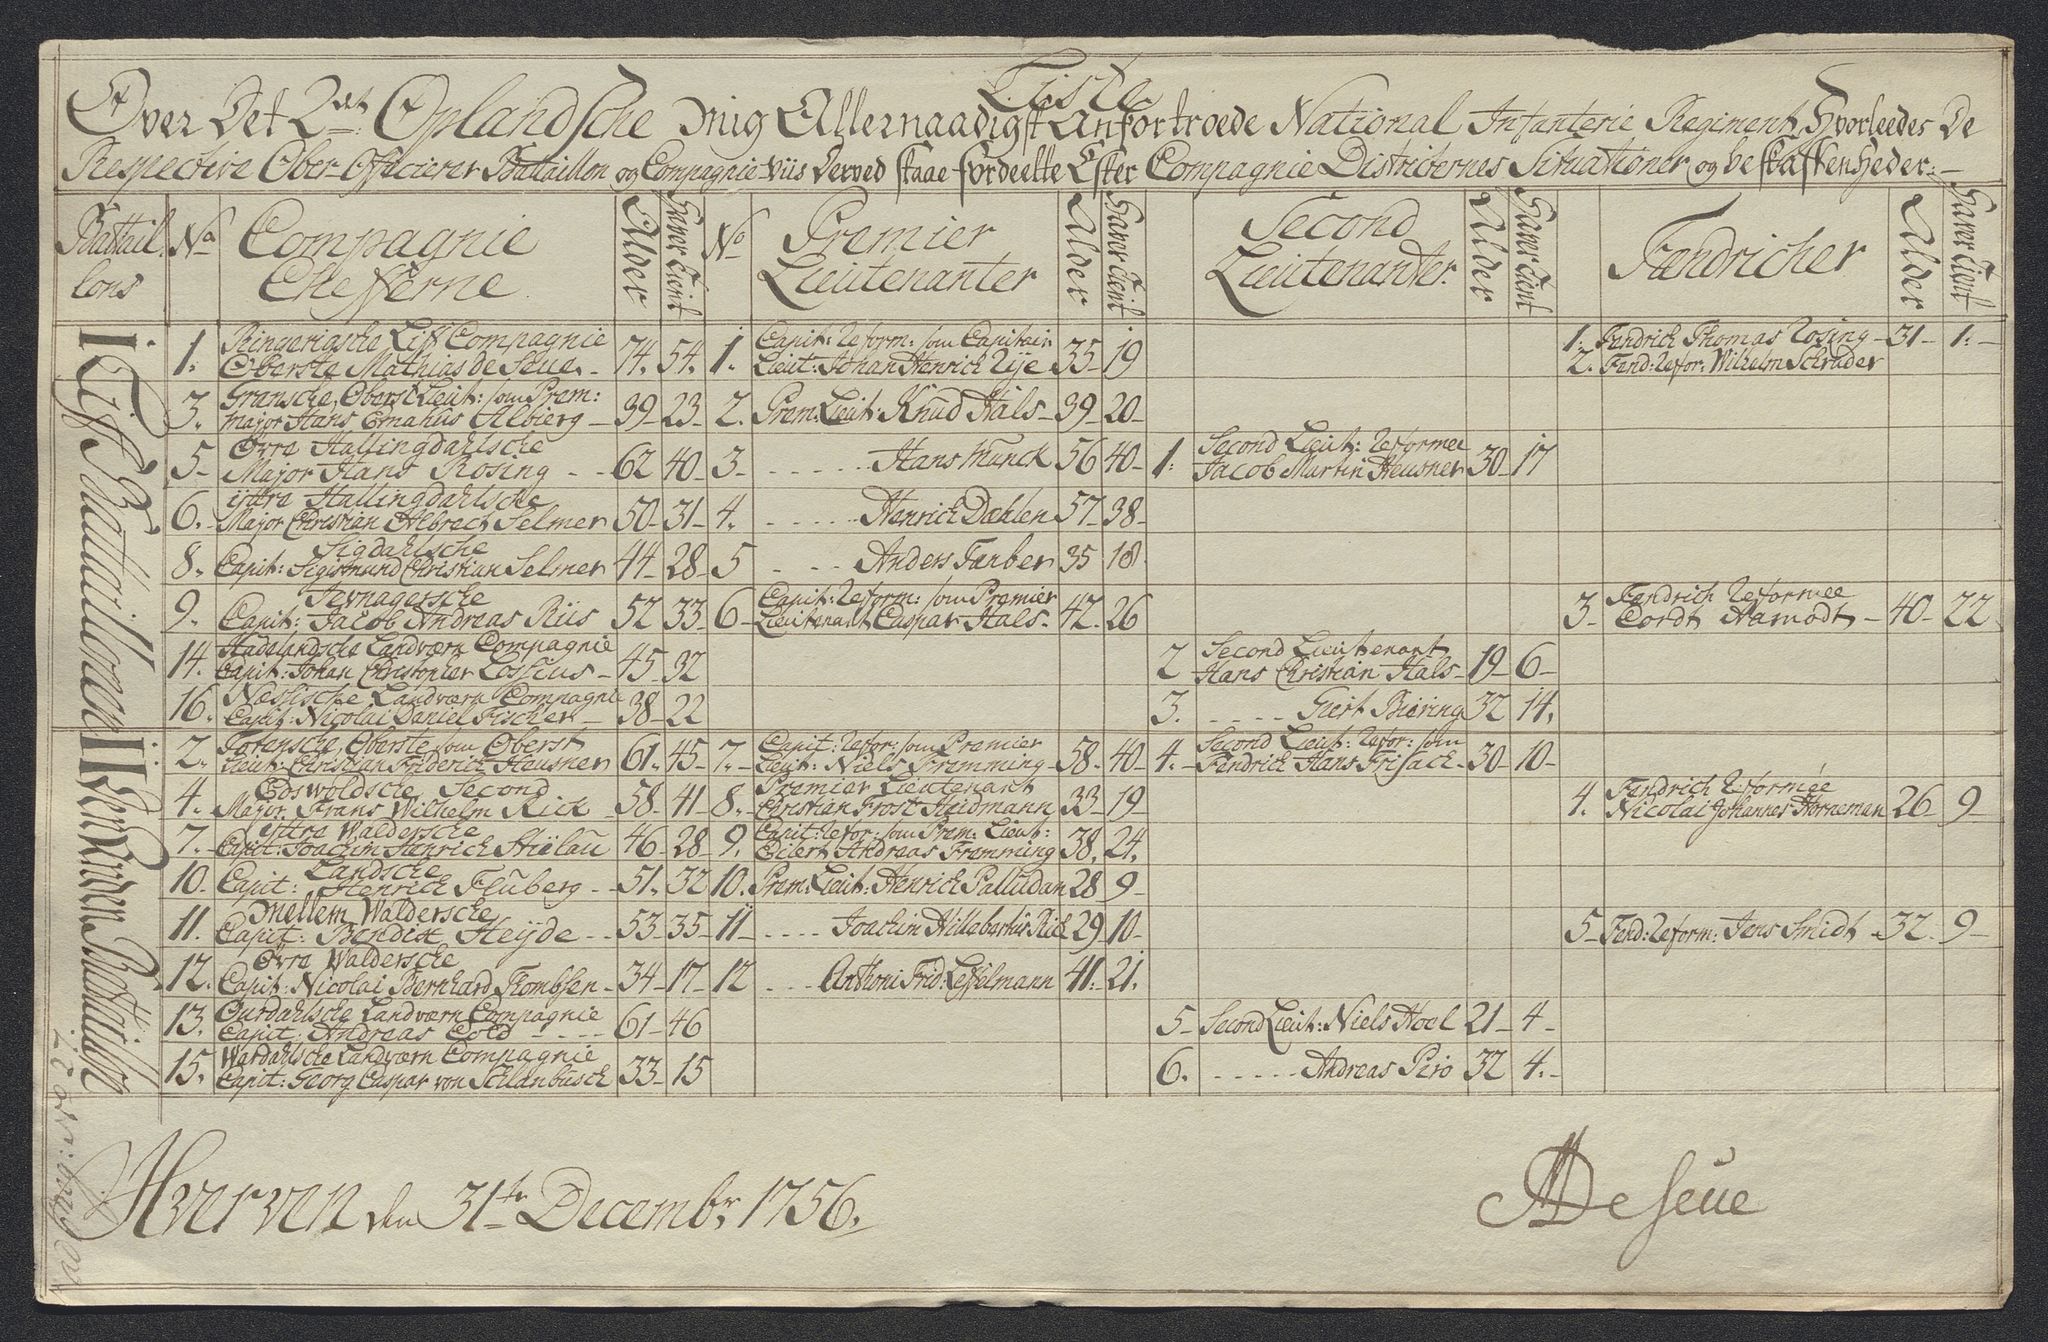 Liste
Over Det 2det Oplandsche mig Allernaadigst Anfortroede National Infanterie Regiment, Hvorleedes De
Respective Ober-Officierer Bataillon og Compagnie-viis derved staae fordeelte Efter Compagnie Districternes Situationer og beskaffenheder:
Battail- No Compagnie Alder Haver Tient No Premier Alder Haver Tient Second Alder Haver Tient Fændricher Alder Haver Tient
lons Chefferne Lieutenanter Lieutenanter
I: Liff Battaillonen
1: Ringerigsche Liff Compagnie 74. 54. 1. Capit: Reform: som Capitain 35 19 1: Fendrich Thomas Rosing 31 1:
Oberste Mathias de Seue Lieut: Johan Henrich Rÿe 2. Fend: Refor: Wilhelm Schrøder
3. Gransche, Oberst Lieut: som Prem: 39 23 2. Prem: Lieut: Knud Hals 39 20
Major Hans Emahus Alberg
5 Øvre Hallingdahlsche 62 40 3 Hans Munck 56 40 1: Second Lieut: Reformee 30 17
Major Hans Rosing Jacob Martin Heusner
6. ÿttre Hallingdahlsche 50 31 4. Henrich Dæhlen 57 38
Major Christian Albrech Selmer
8. Sigdahlsche 44 28 5 Anders Farber 35 18
Capit: Sigismund Christian Selmer
9. Jevnagersche 52 33 6 Capit: Reform: som Premier 42 26 3 Fendrich Reformee 40 22
Capit: Jacob Andreas Riis Lieutenant Caspar Hals Cordt Hamodt
14. Hadelandsche Landværn Compagnie 45 32 2 Second Lieutenant 19 6
Capit: Johan Christopher Lossius Hans Christian Hals
16. Næssische Landværn Compagnie 38 22 3. Giert Biering 32 14.
Capit: Nicolai Daniel Fischer
II: Den Anden Battaillon
2. Totensche, Oberste som Oberst 61. 45 7. Capit: Refor: som Premier 58. 40 4. Second Lieut: Refor: som 30 10
Lieut: Christian Friderich Heusner Lieut: Niels Fremming Fendrich Hans Frisach
4. Edswoldsche, Second 58. 41 8. Premier Lieutenant 33 19 4. Fendrich Reformée 26 9
Major Frans Wilhelm Rick Christian Frost Heidmann Nicolai Johannes Horneman
7. ÿttre Waldersche 46 28 9. Capit: Refor: som Prem: Lieut: 38. 24.
Capit: Joachim Henrich Stilau Eilert Andreas Fremming
10. Landsche 51. 32 10. Prem: Lieut: Henrich Palludan 28 9
Capit: Henrich Fluberg
11. Mellem Waldersche 53 35 11 Joachim Rick 29 10 5 Fend: Reform: Jens Smidt 32 9
Capit: Bendix Heÿde
12. Øvre Waldersche 34 17 12 Anthoni Frid: Leffelmann 41. 21.
Capit: Nicolai Bernhard Thombsen
13. Ourdahlsche Landværn Compagnie 61 46 5 Second Lieut: Niels Hoel 21 4
Capit: Andreas Cold
15. Wardahlsche Landværn Compagnie 33 15 6. Andreas Piro 32 4.
Capit: Georg Caspar von Schlanbusch
Hverven den 31te Decembr 1756.
MDeSeue